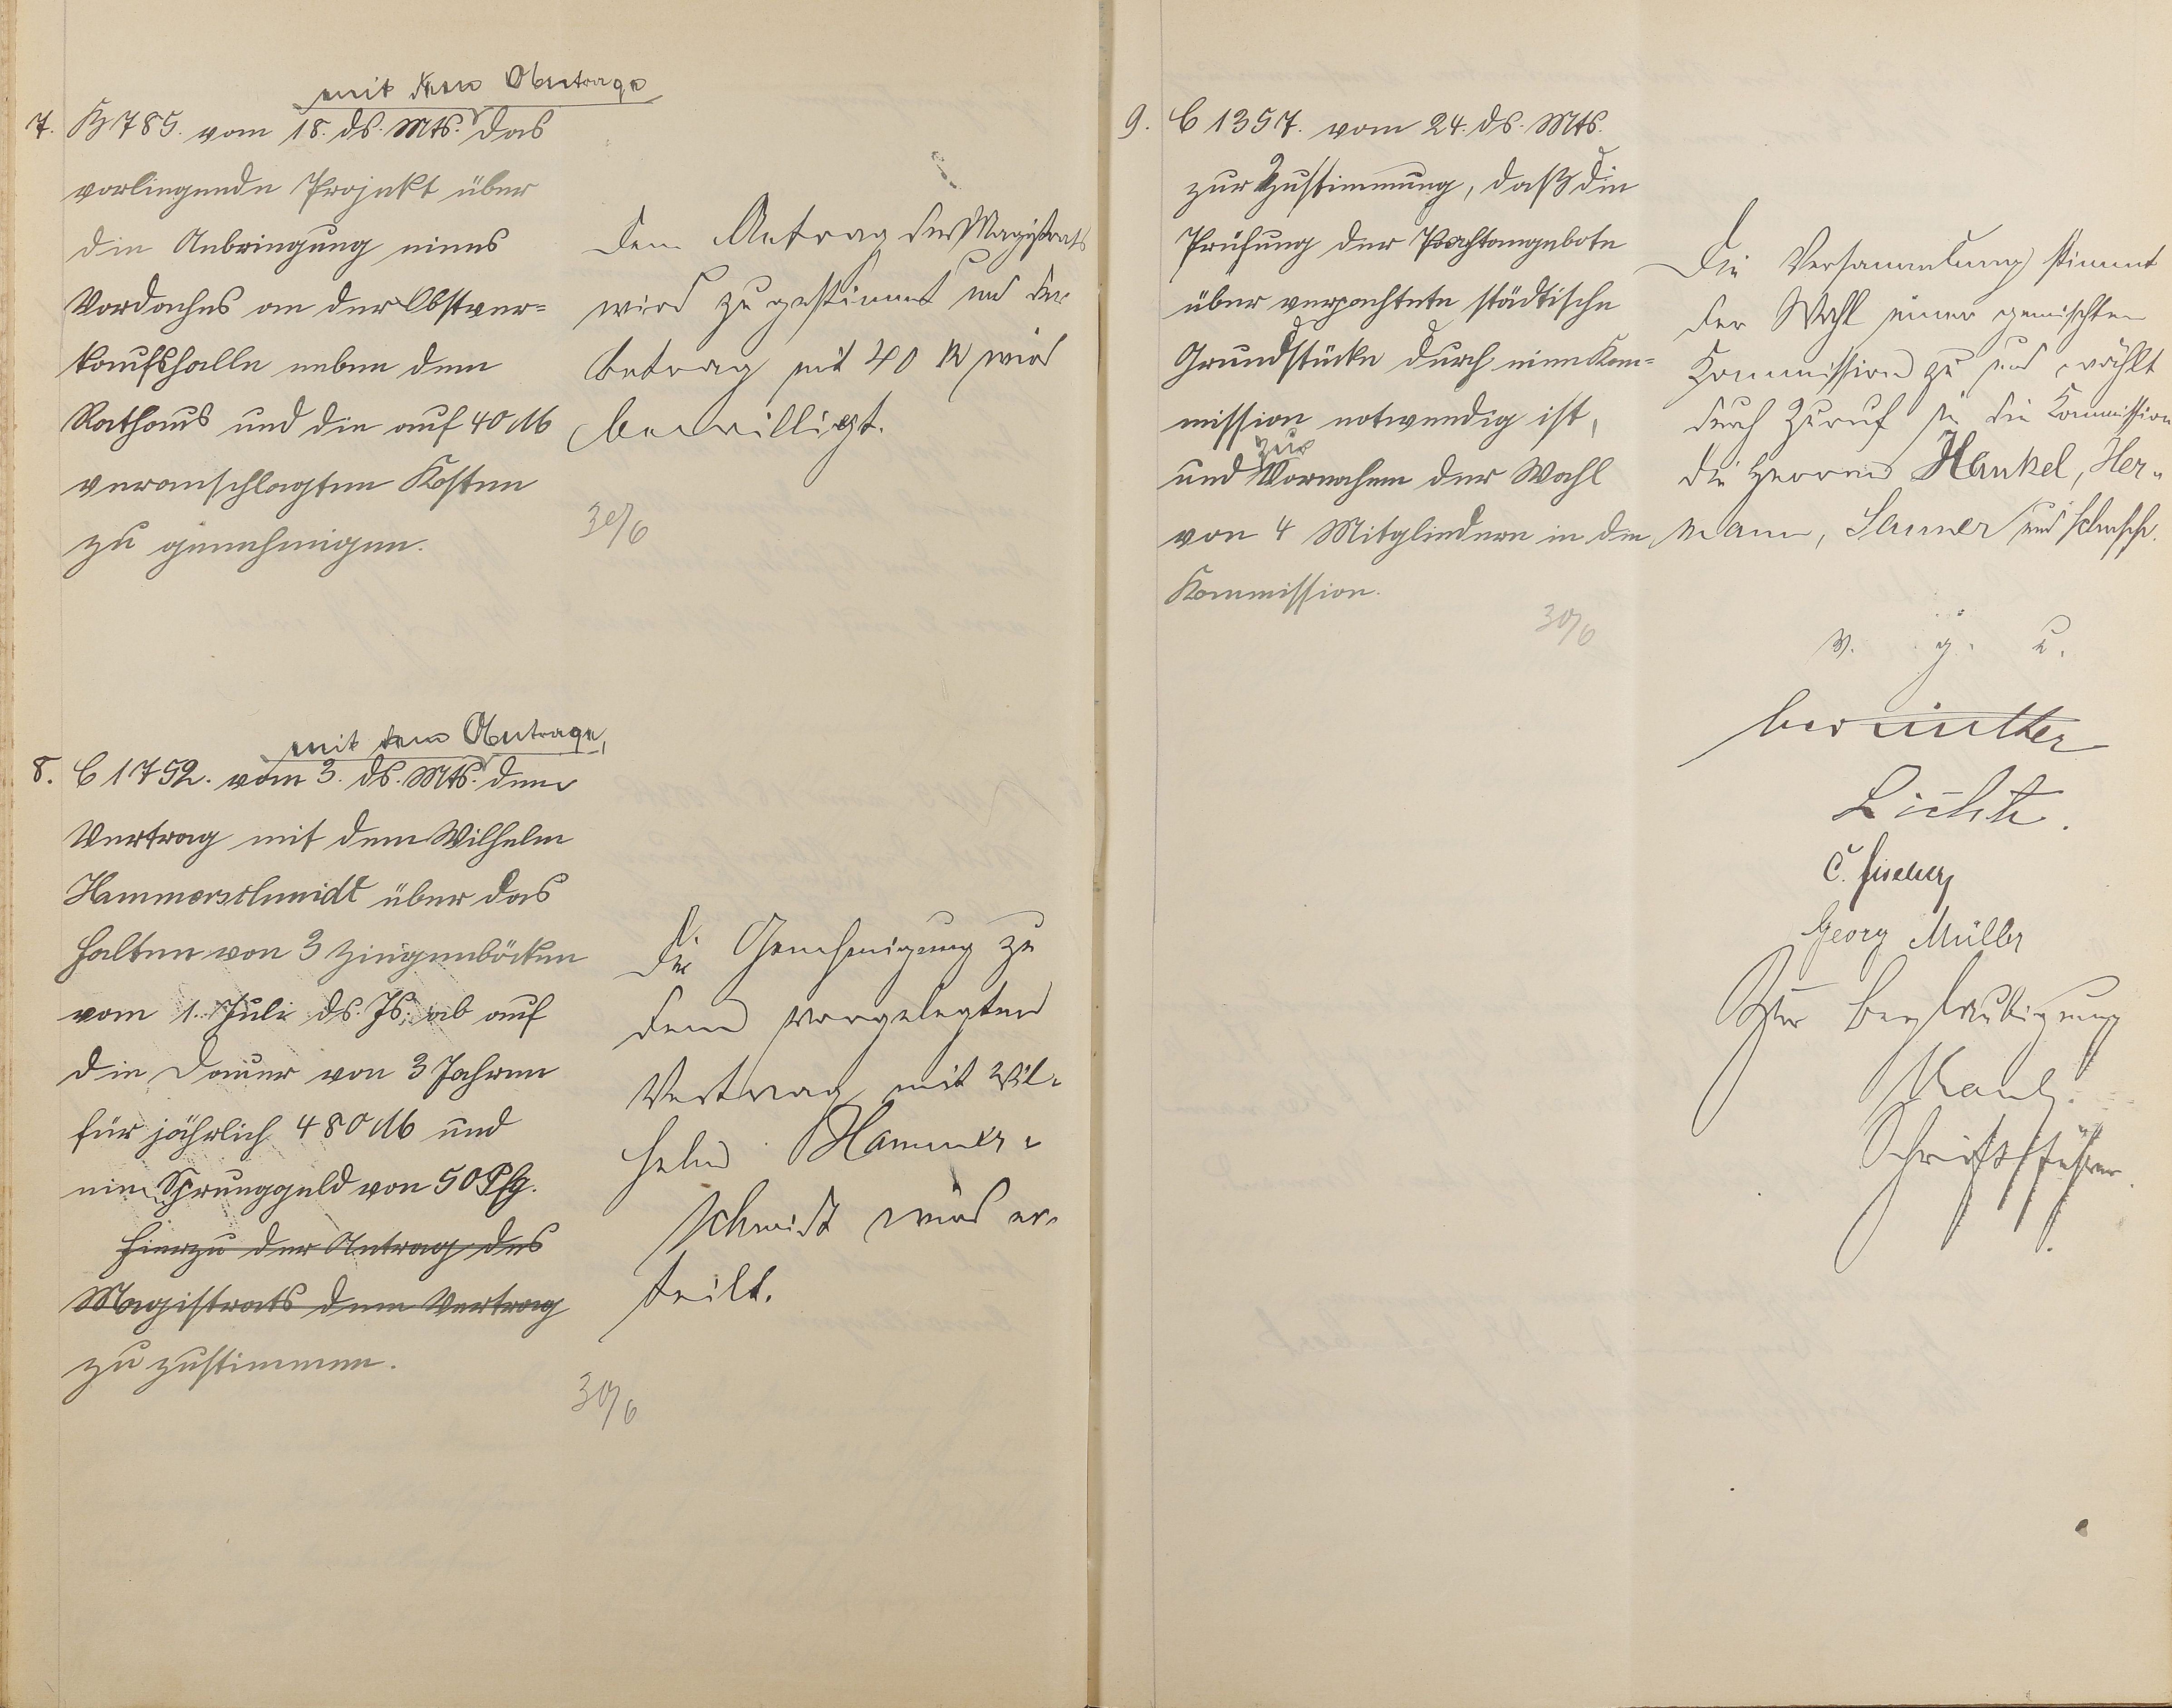 mit dem Antrage
7. B 785. vom 18. ds. Mts. das
vorliegende Projekt über
die Anbringung eines
Vordaches an der Obstver-
kaufshalle neben dem
Rathaus und die auf 40 M
veranschlagten Kosten
zu genehmigen.
Dem Antrag des Magistrats
wird zugestimmt und der
Betrag mit 40 M wird
bewilligt.
30/6
mit dem Antrage,
8. C 1752. vom 3. ds. Mts. dem
Vertrag mit dem Wilhelm
Hammerschmidt über das
Halten von 3 Ziegenböcken
vom 1. Juli ds. Js. ab auf
die Dauer von 3 Jahren
für jährlich 480 M und
ein Sprunggeld von 50 Pfg.
Hierzu der Antrag des
Magistrats dem Vertrag
zu zustimmen.
Die Genehmigung zu
dem vorgelegten
Vertrag mit Wil-
helm Hammer-
schmidt wird er-
teilt.
30/6
9. C 1357. vom 24. ds. Mts.
zur Zustimmung, daß die
Prüfung der Pachtangebote
über verpachtete städtische
Grundstücke durch eine Kom-
mission notwendig ist,
zur
und Vornahme der Wahl
von 4 Mitgliedern in die
Kommission.
30/6
Die Versammlung stimmt
der Wahl einer gemischten
Kommission zu und wählt
durch Zuruf in die Kommission
die Herren Henkel, Her-
mann, und
v. g. u.
Lichte.
C.
Georg Müller
Zur Beglaubigung
Schriftführer.